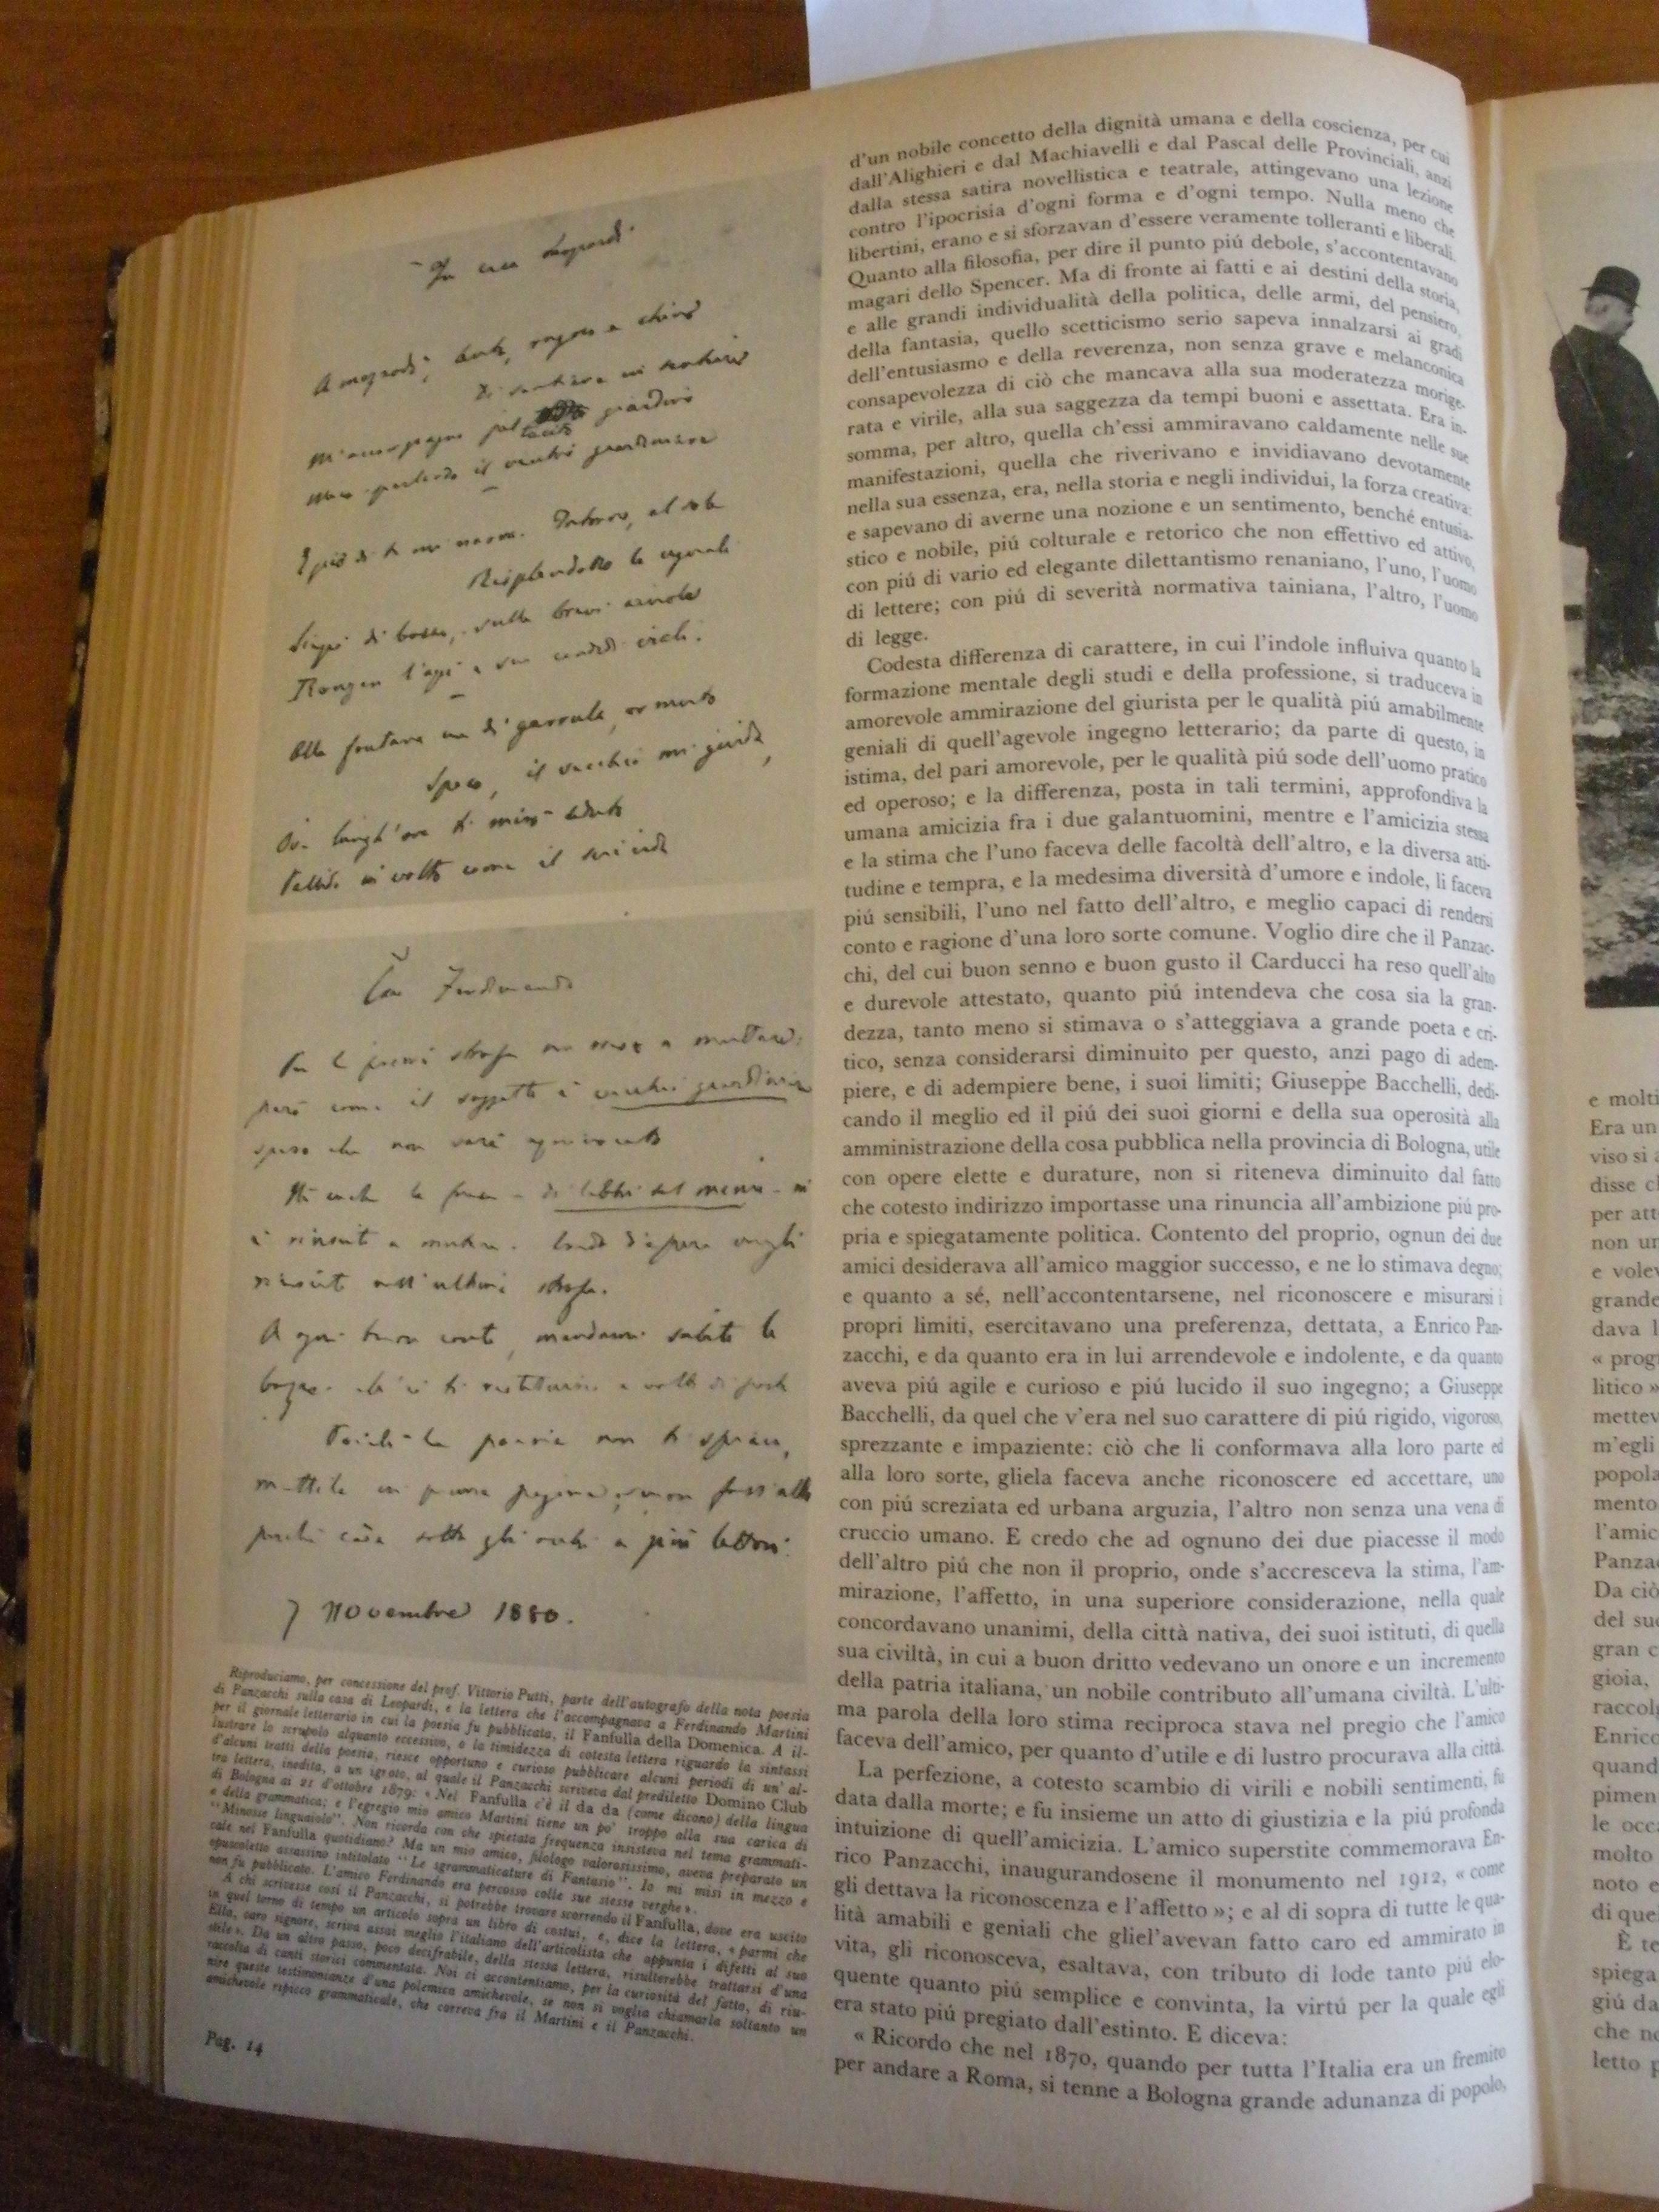 A Leopardi, 
tacito giardino
il vecchio giardiniere
Risplendono le
Siepi di bosso, sulle brevi aiuole
Alla fontana un dì garrula, or muta
Spesso, il vecchio mi guida,
Pallido in volto come il
Caro Ferdinando
però come il soggetto è vecchio giardiniere
spero che non sarà
nell'ultima strofa.
A ogni buon conto, mandami subito le
Poiché la poesia non ti spiace,
mettila in prima pagina
perché cada sotto gli occhi a più lettori.
7 Novembre 1880.
Riproduciamo, per concessione del prof. Vittorio Putti, parte dell'autografo della nota poesia
di Panzacchi sulla casa di Leopardi, e la lettera che l'accompagnava a Ferdinando Martini
per il giornale letterario in cui la poesia fu pubblicata, il Fanfulla della Domenica. A il-
lustrare lo scrupolo alquanto eccessivo, e la timidezza di cotesta lettera riguardo la sintassi
d'alcuni tratti della poesia, riesce opportuno e curioso pubblicare alcuni periodi di un' al-
tra lettera, inedita, a un ignoto, al quale il Panzacchi scriveva dal prediletto Domino Club
di Bologna ai 21 d'ottobre 1879: « Nel Fanfulla c'è il da da (come dicono) della lingua
e della grammatica; e l'egregio mio amico Martini tiene un po' troppo alla sua carica di
"Minosse linguaiolo". Non ricorda con che spietata frequenza insisteva nel tema grammati-
cale nel Fanfulla quotidiano? Ma un mio amico, filologo valorosissimo, aveva preparato un
opuscoletto assassino intitolato "Le sgrammaticature di Fantasio". Io mi misi in mezzo e
non fu pubblicato. L'amico Ferdinando era percosso colle sue stesse verghe ».
A chi scrivesse così il Panzacchi, si potrebbe trovare scorrendo il Fanfulla, dove era uscito
in quel torno di tempo un articolo sopra un libro di costui, e, dice la lettera, « parmi che
Ella, caro signore, scriva assai meglio l'italiano dell'articolista che appunta i difetti al suo
stile ». Da un altro passo, poco decifrabile, della stessa lettera, risulterebbe trattarsi d'una
raccolta di canti storici commentata. Noi ci accontentiamo, per la curiosità del fatto, di riu-
nire queste testimonianze d'una polemica amichevole, se non si voglia chiamarla soltanto un
amichevole ripicco grammaticale, che correva fra il Martini e il Panzacchi.
Pag. 14
d'un nobile concetto della dignità umana e della coscienza, per cui
dall'Alighieri e dal Machiavelli e dal Pascal delle Provinciali, anzi
dalla stessa satira novellistica e teatrale, attingevano una lezione
contro l'ipocrisia d'ogni forma e d'ogni tempo. Nulla meno che
libertini, erano e si sforzavan d'essere veramente tolleranti e liberali.
Quanto alla filosofia, per dire il punto piú debole, s'accontentavano
magari dello Spencer. Ma di fronte ai fatti e ai destini della storia,
e alle grandi individualità della politica, delle armi, del pensiero,
della fantasia, quello scetticismo serio sapeva innalzarsi ai gradi
dell'entusiasmo e della reverenza, non senza grave e melanconica
consapevolezza di ciò che mancava alla sua moderatezza morige-
rata e virile, alla sua saggezza da tempi buoni e assettata. Era in-
somma, per altro, quella ch'essi ammiravano caldamente nelle sue
manifestazioni, quella che riverivano e invidiavano devotamente
nella sua essenza, era, nella storia e negli individui, la forza creativa:
e sapevano di averne una nozione e un sentimento, benché entusia-
stico e nobile, piú colturale e retorico che non effettivo ed attivo,
con piú di vario ed elegante dilettantismo renaniano, l'uno, l'uomo
di lettere; con piú di severità normativa tainiana, l'altro, l'uomo
di legge.
Codesta differenza di carattere, in cui l'indole influiva quanto la
formazione mentale degli studi e della professione, si traduceva in
amorevole ammirazione del giurista per le qualità piú amabilmente
geniali di quell'agevole ingegno letterario; da parte di questo, in
istima, del pari amorevole, per le qualità piú sode dell'uomo pratico
ed operoso; e la differenza, posta in tali termini, approfondiva la
umana amicizia fra i due galantuomini, mentre e l'amicizia stessa
e la stima che l'uno faceva delle facoltà dell'altro, e la diversa atti-
tudine e tempra, e la medesima diversità d'umore e indole, li faceva
piú sensibili, l'uno nel fatto dell'altro, e meglio capaci di rendersi
conto e ragione d'una loro sorte comune. Voglio dire che il Panzac-
chi, del cui buon senno e buon gusto il Carducci ha reso quell'alto
e durevole attestato, quanto piú intendeva che cosa sia la gran-
dezza, tanto meno si stimava o s'atteggiava a grande poeta e cri-
tico, senza considerarsi diminuito per questo, anzi pago di adem-
piere, e di adempiere bene, i suoi limiti; Giuseppe Bacchelli, dedi-
cando il meglio ed il piú dei suoi giorni e della sua operosità alla
amministrazione della cosa pubblica nella provincia di Bologna, utile
con opere elette e durature, non si riteneva diminuito dal fatto
che cotesto indirizzo importasse una rinuncia all'ambizione piú pro-
pria e spiegatamente politica. Contento del proprio, ognun dei due
amici desiderava all'amico maggior successo, e ne lo stimava degno;
e quanto a sé, nell'accontentarsene, nel riconoscere e misurarsi i
propri limiti, esercitavano una preferenza, dettata, a Enrico Pan-
zacchi, e da quanto era in lui arrendevole e indolente, e da quanto
aveva piú agile e curioso e piú lucido il suo ingegno; a Giuseppe
Bacchelli, da quel che v'era nel suo carattere di piú rigido, vigoroso,
sprezzante e impaziente: ciò che li conformava alla loro parte ed
alla loro sorte, gliela faceva anche riconoscere ed accettare, uno
con piú screziata ed urbana arguzia, l'altro non senza una vena di
cruccio umano. E credo che ad ognuno dei due piacesse il modo
dell'altro piú che non il proprio, onde s'accresceva la stima, l'am-
mirazione, l'affetto, in una superiore considerazione, nella quale
concordavano unanimi, della città nativa, dei suoi istituti, di quella
sua civiltà, in cui a buon dritto vedevano un onore e un incremento
della patria italiana, un nobile contributo all'umana civiltà. L'ulti-
ma parola della loro stima reciproca stava nel pregio che l'amico
faceva dell'amico, per quanto d'utile e di lustro procurava alla città.
La perfezione, a cotesto scambio di virili e nobili sentimenti, fu
data dalla morte; e fu insieme un atto di giustizia e la piú profonda
intuizione di quell'amicizia. L'amico superstite commemorava En-
rico Panzacchi, inaugurandosene il monumento nel 1912, « come
gli dettava la riconoscenza e l'affetto »; e al di sopra di tutte le qua-
lità amabili e geniali che gliel'avevan fatto caro ed ammirato in
vita, gli riconosceva, esaltava, con tributo di lode tanto piú elo-
quente quanto piú semplice e convinta, la virtú per la quale egli
era stato piú pregiato dall'estinto. E diceva:
« Ricordo che nel 1870, quando per tutta l'Italia era un fremito
per andare a Roma, si tenne a Bologna grande adunanza di popolo,
e molti
Era un
viso si
disse
per att
non un
e
grande
dava
« prog
litico »
mettev
m'egli
popola
mento
l'amic
Panza
Da ciò
del suo
gran
gioia,
raccol
Enrico
quand
pimen
le occ
molto
noto e
di que
È te
spiega
giú da
che
letto